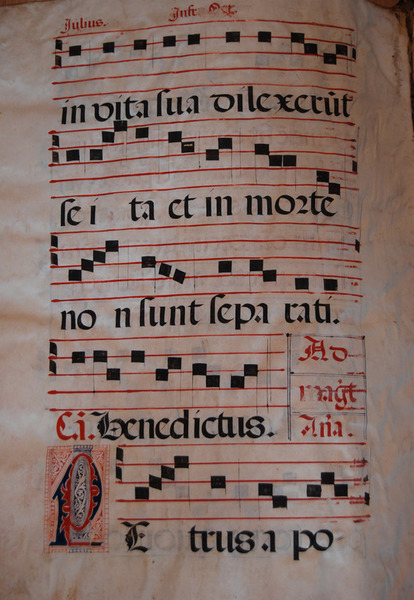 Jubus.
in vita sua dilexerũt
se i ta et in morte
no n sunt sepa rati.
Ad
magt̃
Cã. Benedictus. Añа.
PE trus a po-